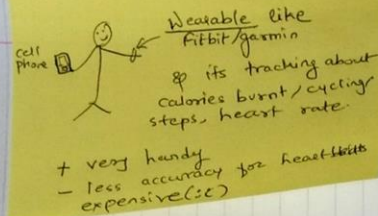 cell
phone
Wearable like
Fitbit/garmin
& its tracking about
calories burnt/cycling
steps, heart rate.
+ very handy
- less accuracy for heart
expensive(:c)